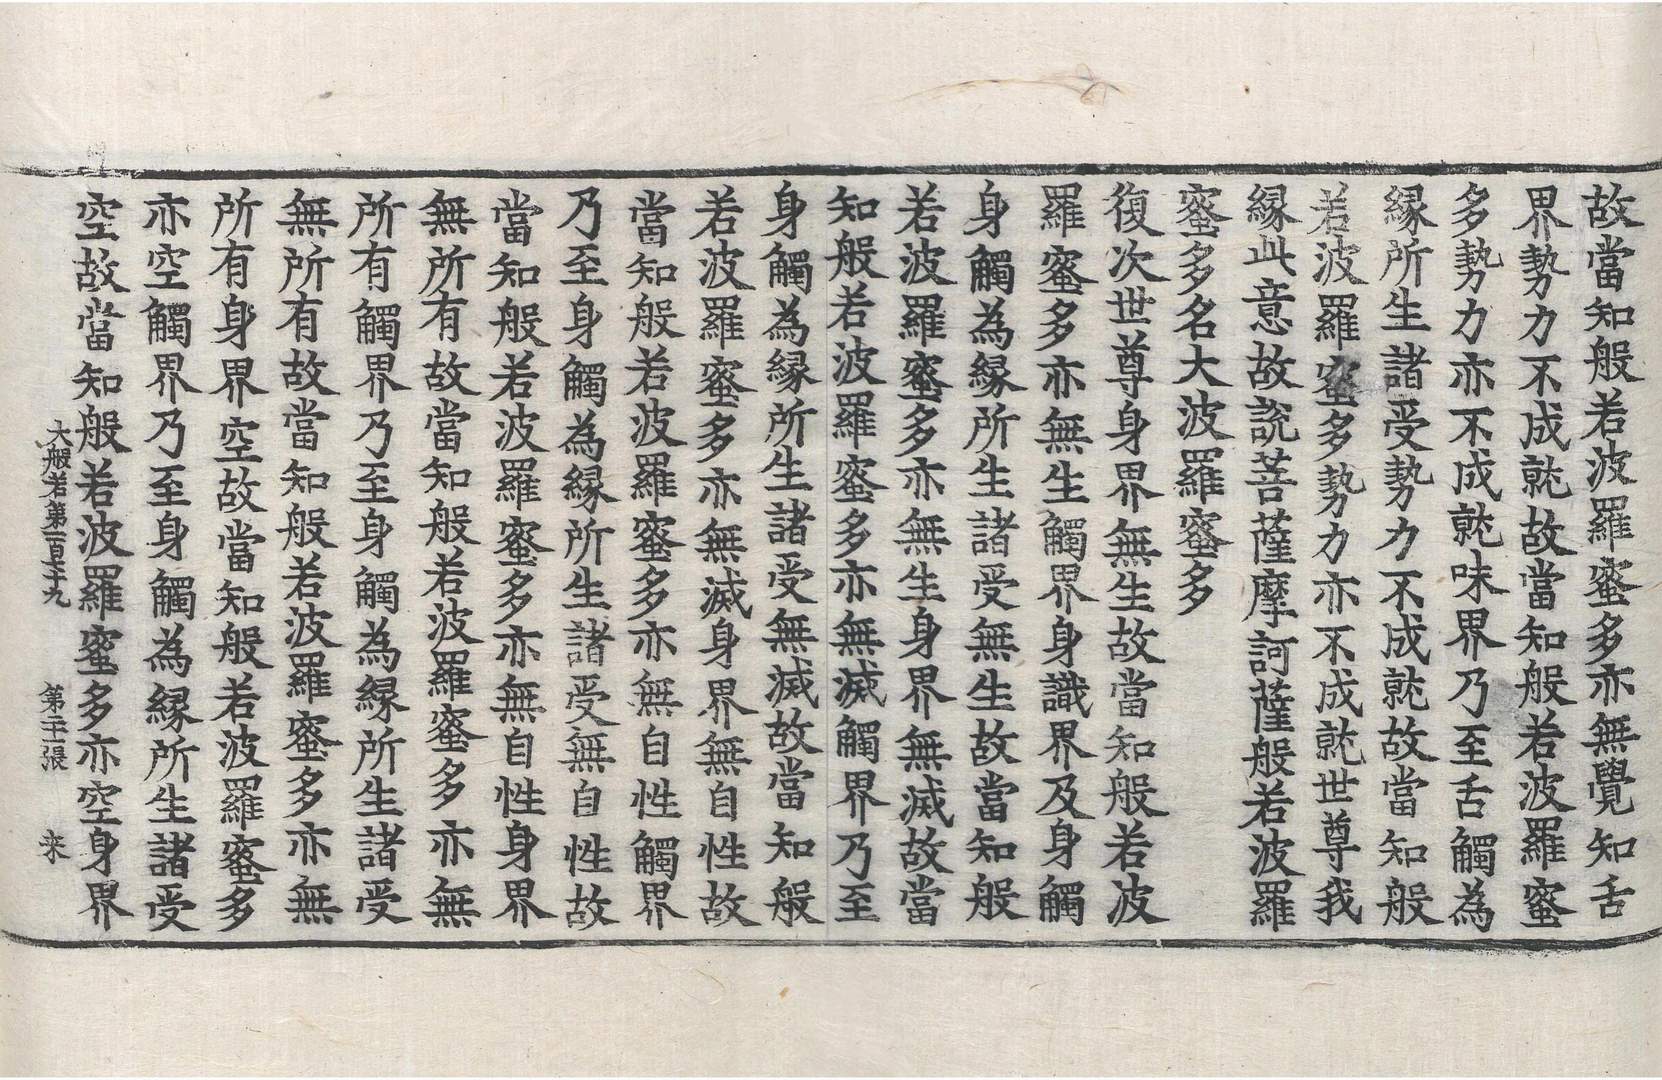 故當知般若波羅蜜多亦無覺知舌
界勢力不成就故當知般若波羅蜜
多勢力亦不成就味界乃至舌觸為
緣所生諸受勢力不成就故當知般
若波羅蜜多勢力亦不成就世尊我
緣此意故說菩薩摩訶薩般若波羅
蜜多名大波羅蜜多
復次世尊身界無生故當知般若波
羅蜜多亦無生觸界身識界及身觸
身觸為緣所生諸受無生故當知般
若波羅蜜多亦無生身界無滅故當
知般若波羅蜜多亦無滅觸界乃至
身觸為緣所生諸受無滅故當知般
若波羅蜜多亦無滅身界無自性故
當知般若波羅蜜多亦無自性觸界
乃至身觸為緣所生諸受無自性故
當知般若波羅蜜多亦無自性身界
無所有故當知般若波羅蜜多亦無
所有觸界乃至身觸為緣所生諸受
無所有故當知般若波羅蜜多亦無
所有身界空故當知般若波羅蜜多
亦空觸界乃至身觸為緣所生諸受
空故當知般若波羅蜜多亦空身界
大般若第一百七十九 第二十張 來